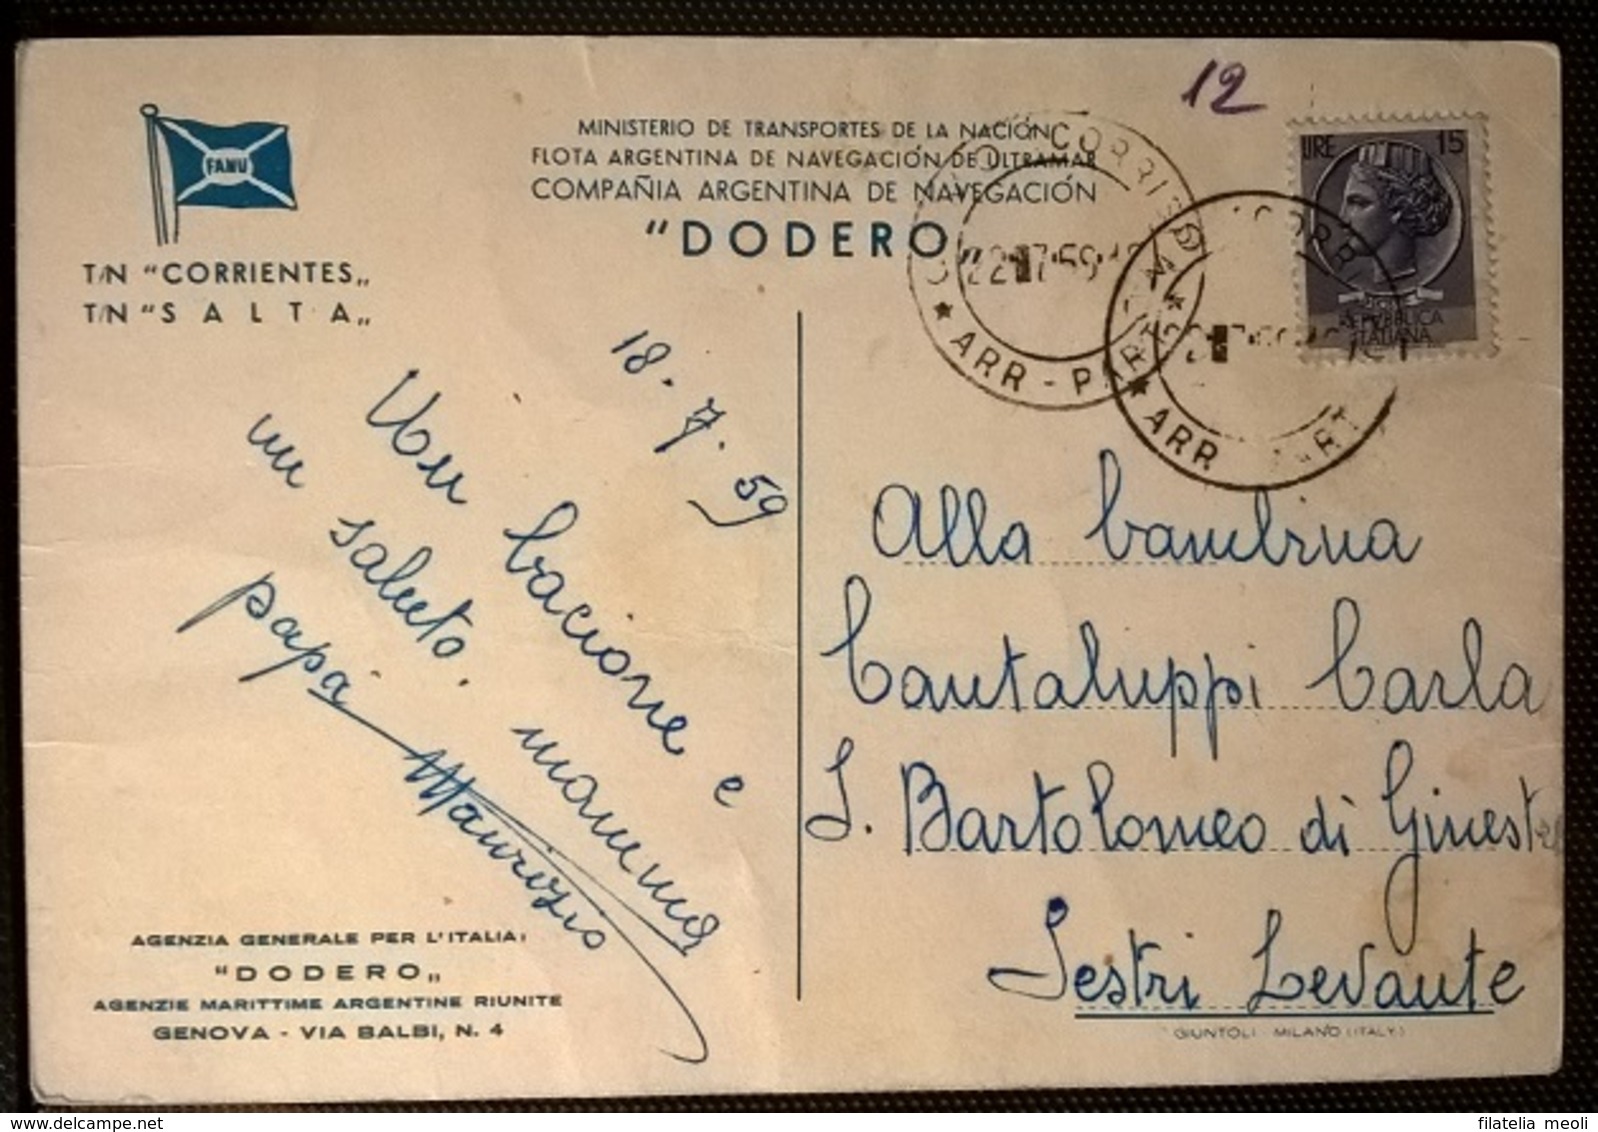 12
FANU
T/N "CORRIENTES„
T/N "SALTA„
MINISTERIO DE TRANSPORTES DE LA NACIÓN
FLOTA ARGENTINA DE NAVEGACIÓN DE ULTRAMAR
COMPAÑIA ARGENTINA DE NAVEGACIÓN
"DODERO„
CORRISP
22·7·59
★ ARR - PART
CORR
★ ARR PART
LIRE 15
REPUBBLICA
ITALIANA
18.7.59
Un bacione e
un saluto. mamma
papà Maurizio
Alla bambina
Cantaluppi Carla
S. Bartolomeo di Ginestra
Sestri Levante
AGENZIA GENERALE PER L'ITALIA:
"DODERO„
AGENZIE MARITTIME ARGENTINE RIUNITE
GENOVA - VIA BALBI, N. 4
GIUNTOLI - MILANO (ITALY)
filatelia meoli